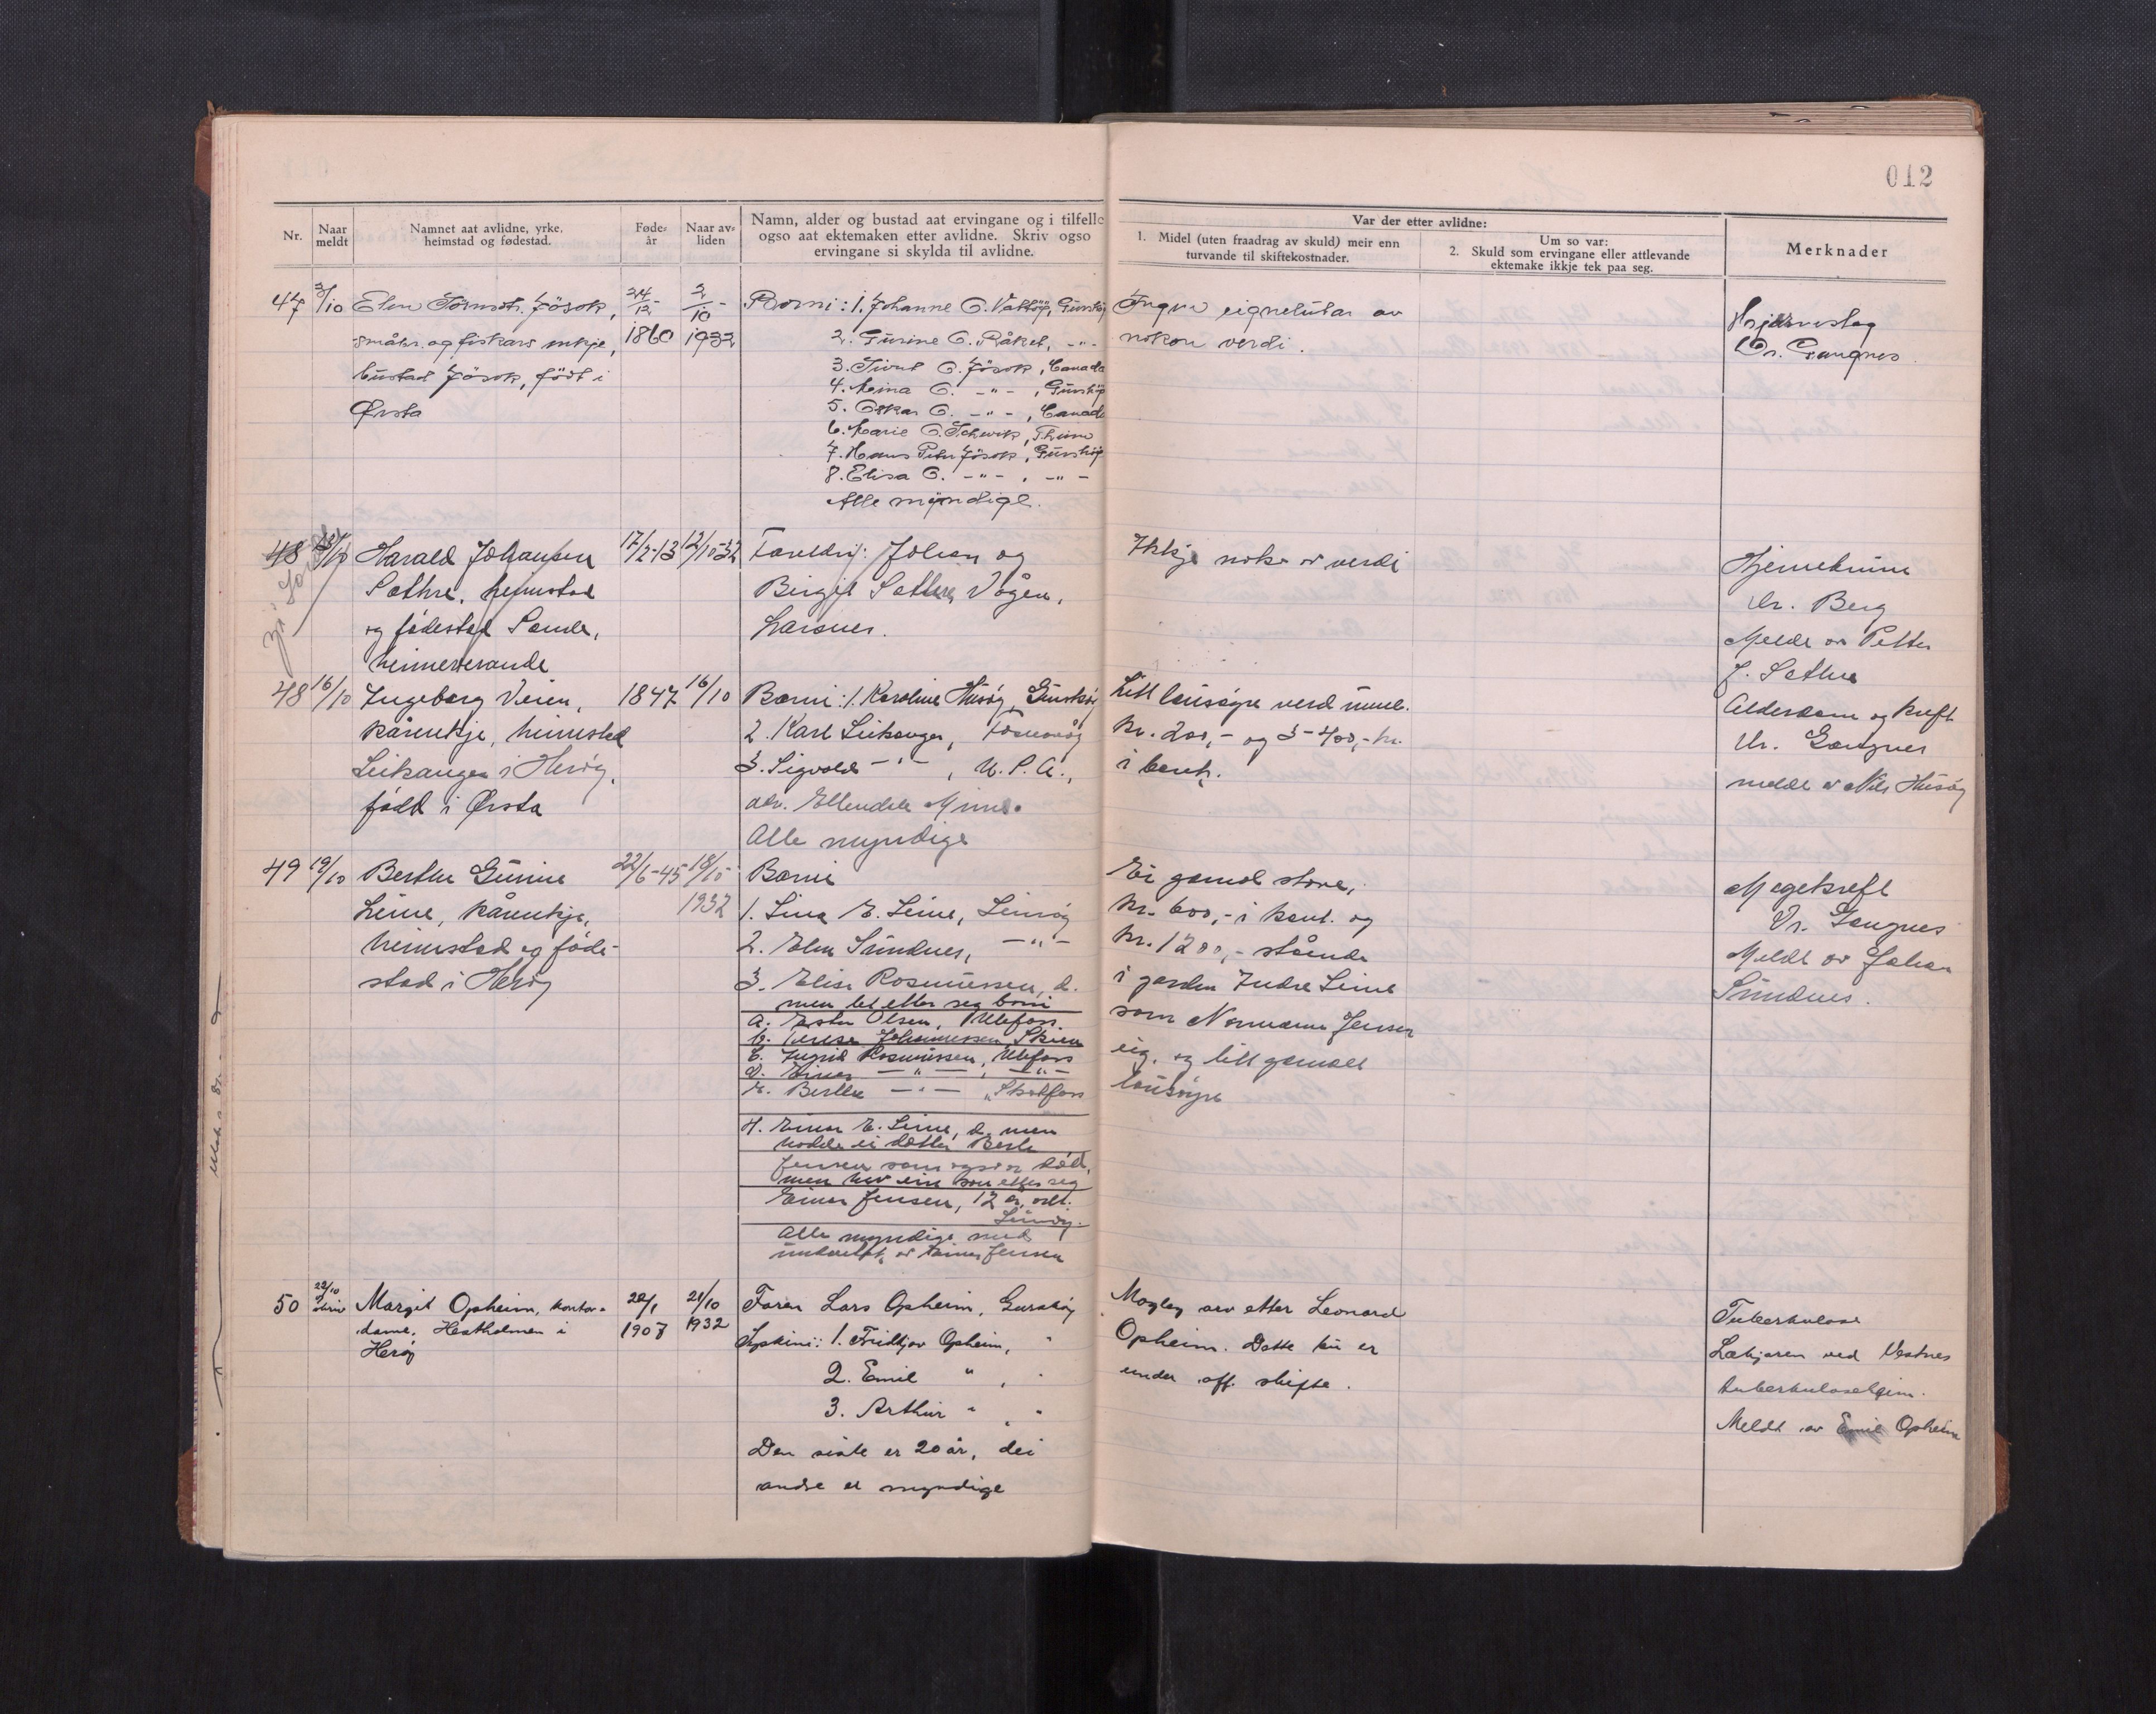 012
Nr.
Naar meldt
Namnet aat avlidne, yrke, heimstad og fødestad.
Føde-år
Naar av-liden
Namn, alder og bustad aat ervingane og i tilfelle
ogso aat ektemaken etter avlidne. Skriv ogso
ervingane si skylda til avlidne.
Var der etter avlidne:
1. Midel (uten fraadrag av skuld) meir enn
turvande til skiftekostnader.
Um so var:
2. Skuld som ervingane eller attlevande
ektemake ikkje tek paa seg.
Merknader
47 3/10 Elen Jøsok,
småbr. og fiskar enkje,
bustad Jøsok, födt i
Ørsta
24/12-1860
2/10-1932
Borni: 1. Johanne O. Gurskøy
2. Gurine O. Råket, -"-
3. O. Jøsok, Canada
4. Mina O. -"-, Gurskøy
5. Oskar O. -"-, Canada
6. Marie O.
7. Hans Peter Jøsok, Gurskøy
8. Elisa O. -"-, -"-
Alle myndige.
Ingen eignelutar av
nokon verdi.
Hjerneslag
Dr. Gangnes
48 13/10 Harald Johansen
Sæthre, heimstad
og fødestad Sande,
heimeverande
17/2-13
12/10-32
Foreldri: Johan og
Birgit Sæthre, Vågen,
Larsnes.
Ikkje noko av verdi
Dr. Berg
Meldt av Petter
J. Sæthre
48 16/10 Ingeborg Veien,
kårenkje, heimstad
Leikanger i Herøy,
født i Ørsta
1847
16/10
Borni: 1. Karoline Husøy, Gurskøy
2. Karl Leikanger, Fosnavåg
3. Sigvald -"-, U.S.A.,
adr. Ellendale Minn.
Alle myndige
Litt lausøyre verd
kr. 200,- og 3-400,- kr.
i bank.
Alderdom og kreft
Dr. Gangnes
meldt av Nils Husøy
49 19/10 Berthe Gurine
Leine, kårenkje,
heimstad og føde-
stad i Herøy
22/6-45
18/10
1932
Borni
1. Lina E. Leine, Leinøy
2. Elen Sundnes, -"-
3. Elise Rasmussen, d.
men let etter seg borni
a. Ester Olsen, Ulefoss.
b. Johannessen, Skien
c. Ingrid Rasmussen, Ulefoss
d. Einar -"-, -"-
e. Berthe -"- Skotfoss
4. Einar E. Leine, d. men
hadde ei dotter Berte
Jensen som også er død,
men hev ein son etter seg
Einar Jensen, 12 år, adr.
Leinøy.
Alle myndige med
undantak av Einar Jensen
Ei gamal stove,
kr. 600,- i kont. og
kr. 1200,- ståande
i garden Indre Leine
som Normann Jensen
eig, og litt gamalt
lausøyre
Magekreft
Dr. Gangnes
Meldt av Johan
Sundnes.
50 22/10 skriv Margit Opheim, kontor-
dame, Hestholmen i
Herøy
22/1
1907
21/10
1932
Faren Lars Opheim, Gurskøy
Syskini: 1. Fridtjov Opheim, "
2. Emil ", "
3. Arthur ", "
Den siste er 20 år, dei
andre er myndige
Mogleg arv etter Leonard
Opheim. Dette bu er
under off. skifte.
Tuberkulose
Lækjaren ved Vestnes
tuberkuloseheim.
Meldt av Emil Opheim